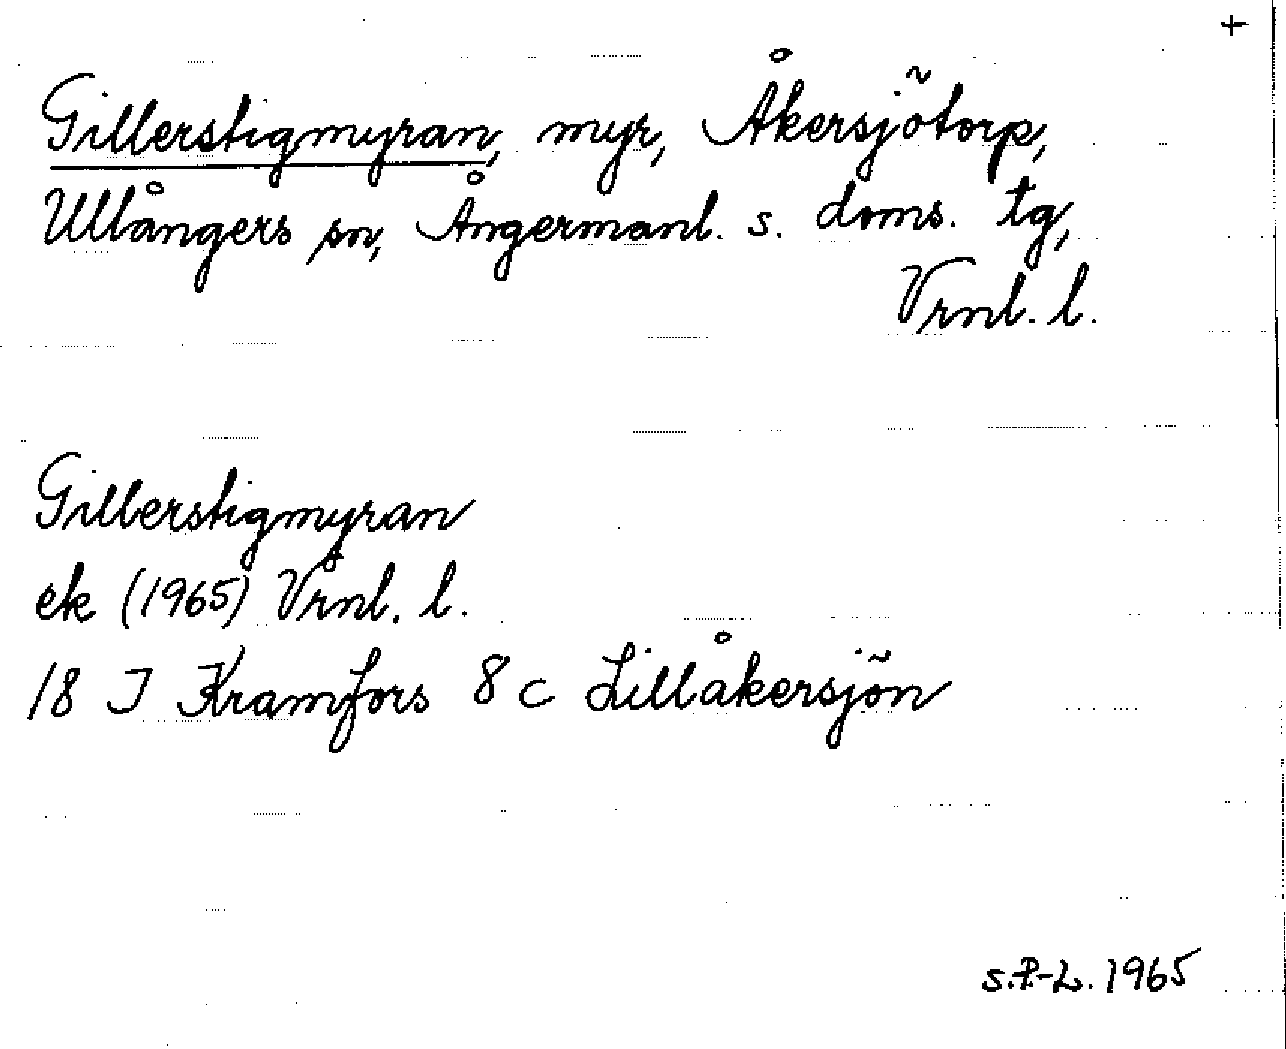 +
Gillerstigmyran, myr, Åkersjötorp,
Ullångers sn, Ångermanl. s. doms. tg,
Vrnl. l.
Gillerstigmyran
ek (1965) Vrnl. l.
18 I Kramfors 8 c Lillåkersjön
S.P-L. 1965